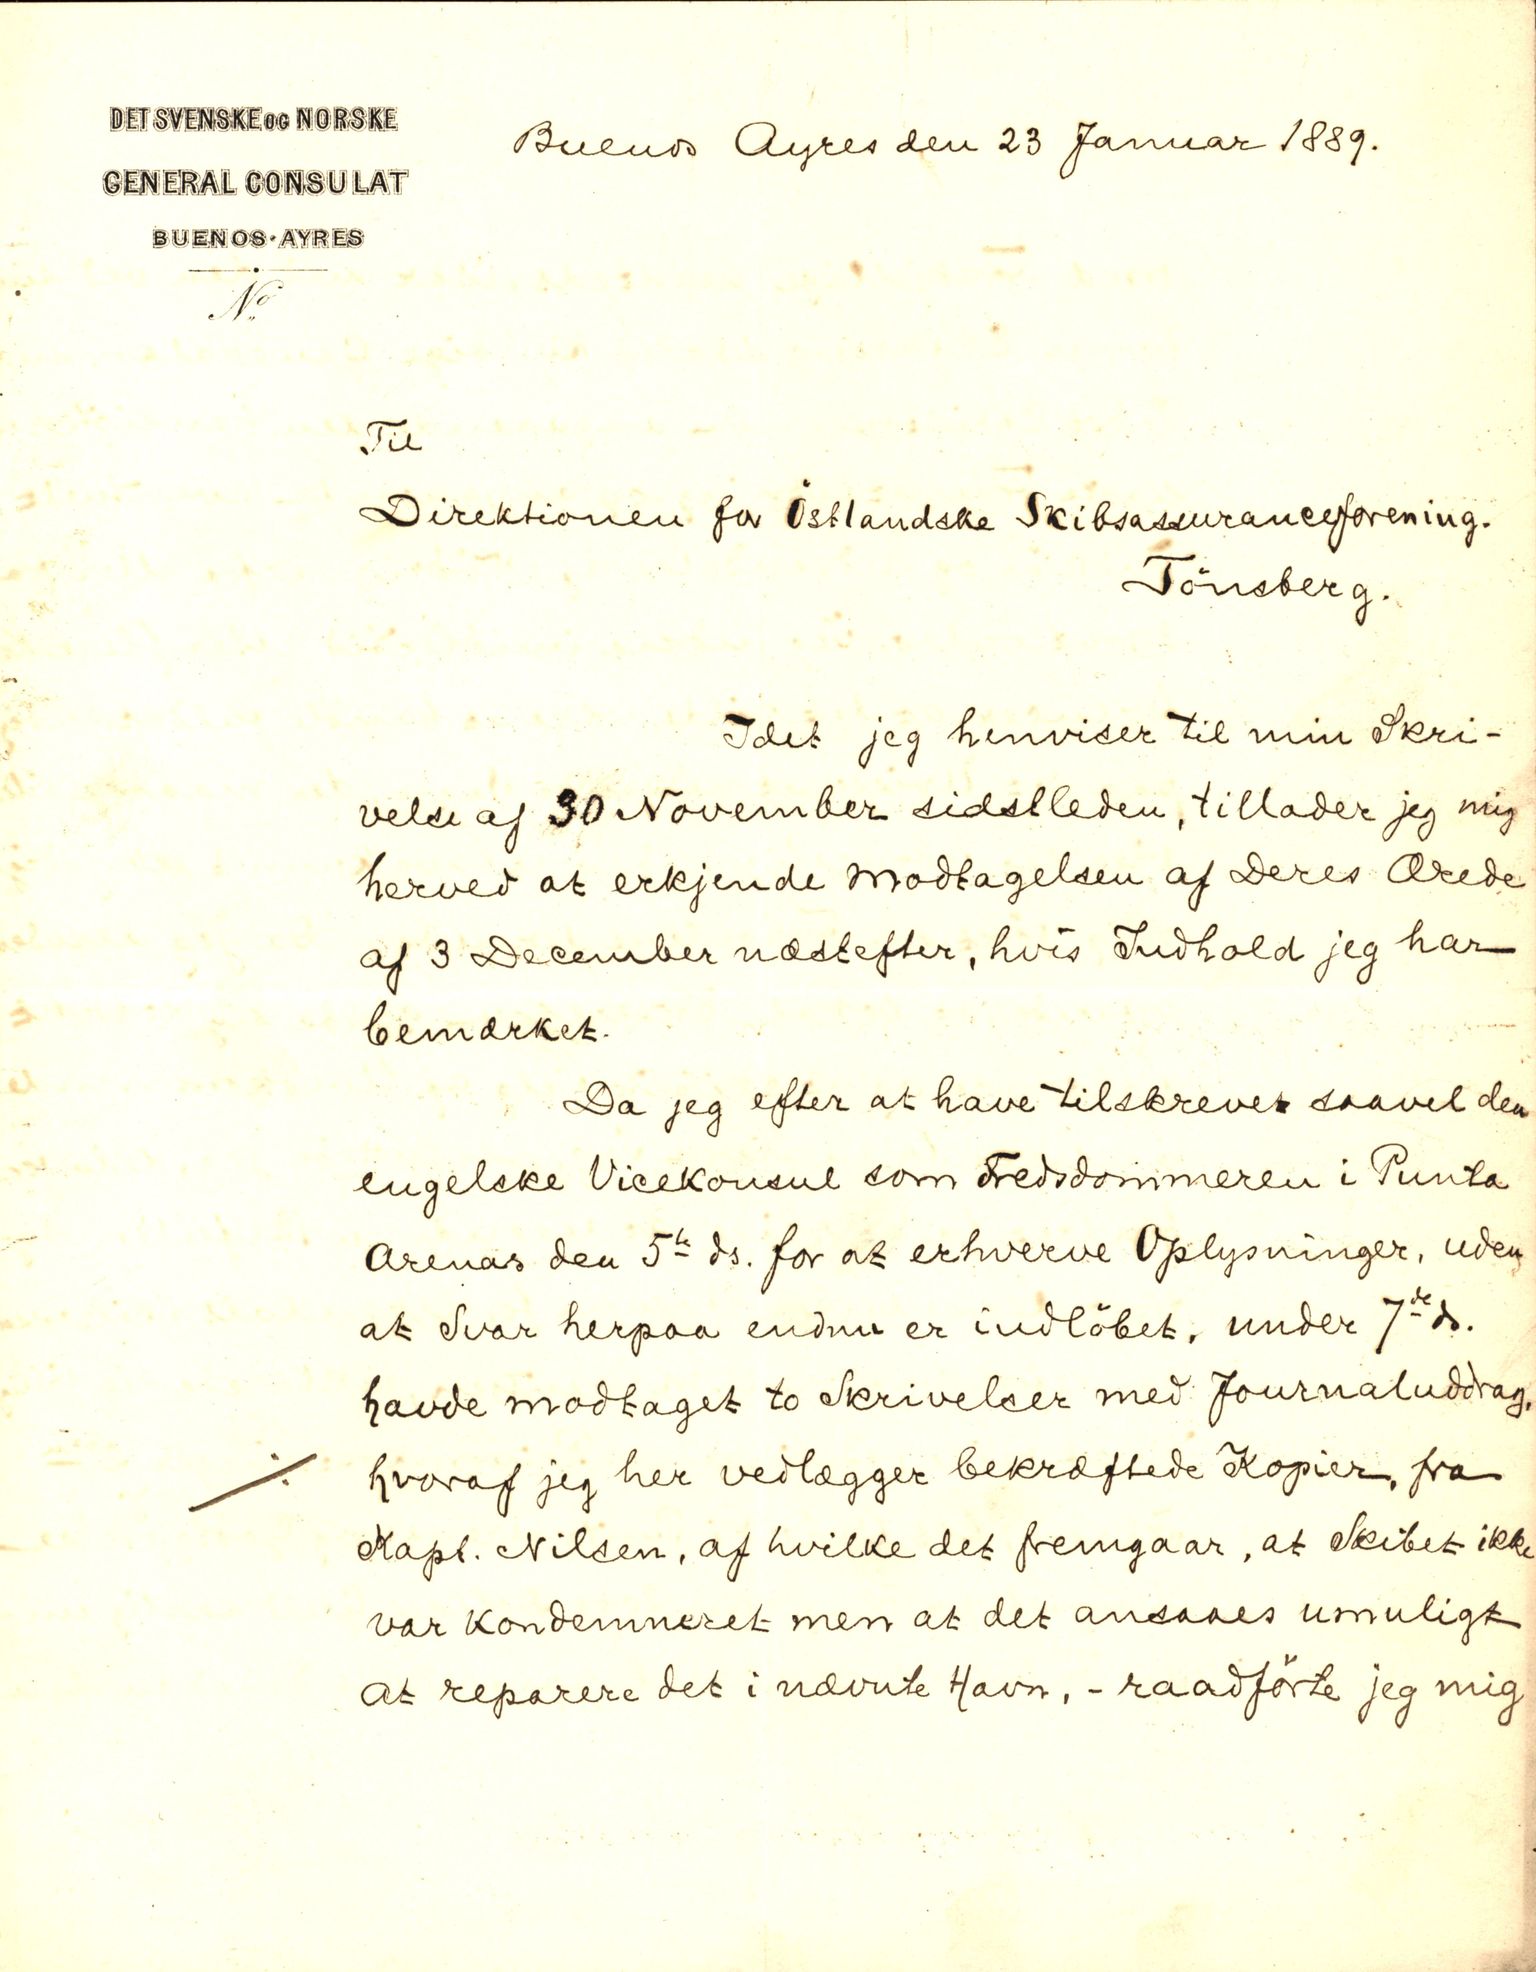 DET SVENSKE OG NORSKE
GENERAL CONSULAT
BUENOS-AYRES
No
Buenos Ayres den 23 Januar 1889.
Til
Direktionen for Östlandske Skibsassuranceforening.
Tönsberg.
Idet jeg henviser til min Skri-
velse af 30 November sidstleden, tillader jeg mig
herved at erkjende Modtagelsen af Deres Ærede
af 3 December næstefter, hvis Indhold jeg har
bemærket.
Da jeg efter at have tilskrevet saavel den
engelske Vicekonsul som Fredsdommeren i Punta
Arenas den 5te ds. for at erhverve Oplysninger, uden
at Svar herpaa endnu er indlöbet, under 7de ds.
havde modtaget to Skrivelser med Journaluddrag,
·/· hvoraf jeg her vedlægger bekræftede Kopier, fra
Kapt. Nilsen, af hvilke det fremgaar, at Skibet ikke
var kondemneret men at det ansaaes umuligt
at reparere det i nævnte Havn, - raadförte jeg mig